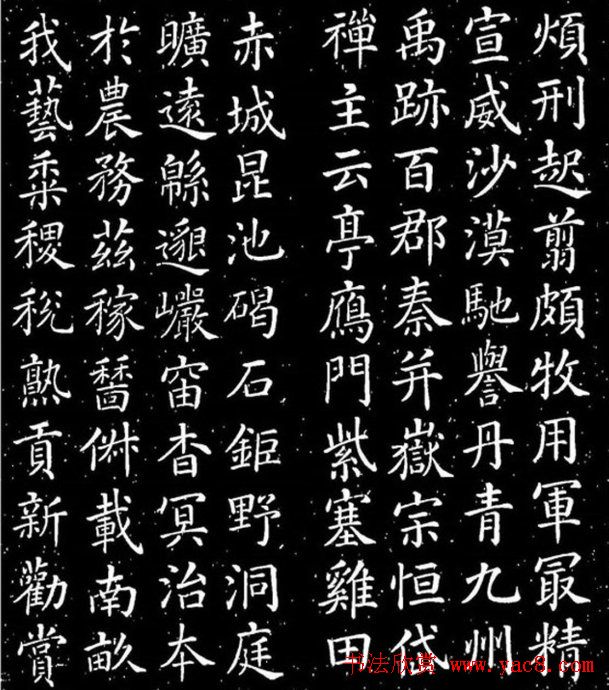 煩刑起翦頗牧用軍冣精
宣威沙漠馳譽丹青九州
禹跡百郡秦并嶽宗恒代
禪主云亭鴈門紫塞雞田
赤城昆池碣石鉅野洞庭
曠遠緜邈巗峀杳冥治本
於農務茲稼穡俶載南畝
我藝黍稷稅熟貢新勸賞
书法欣赏 www.yac8.com